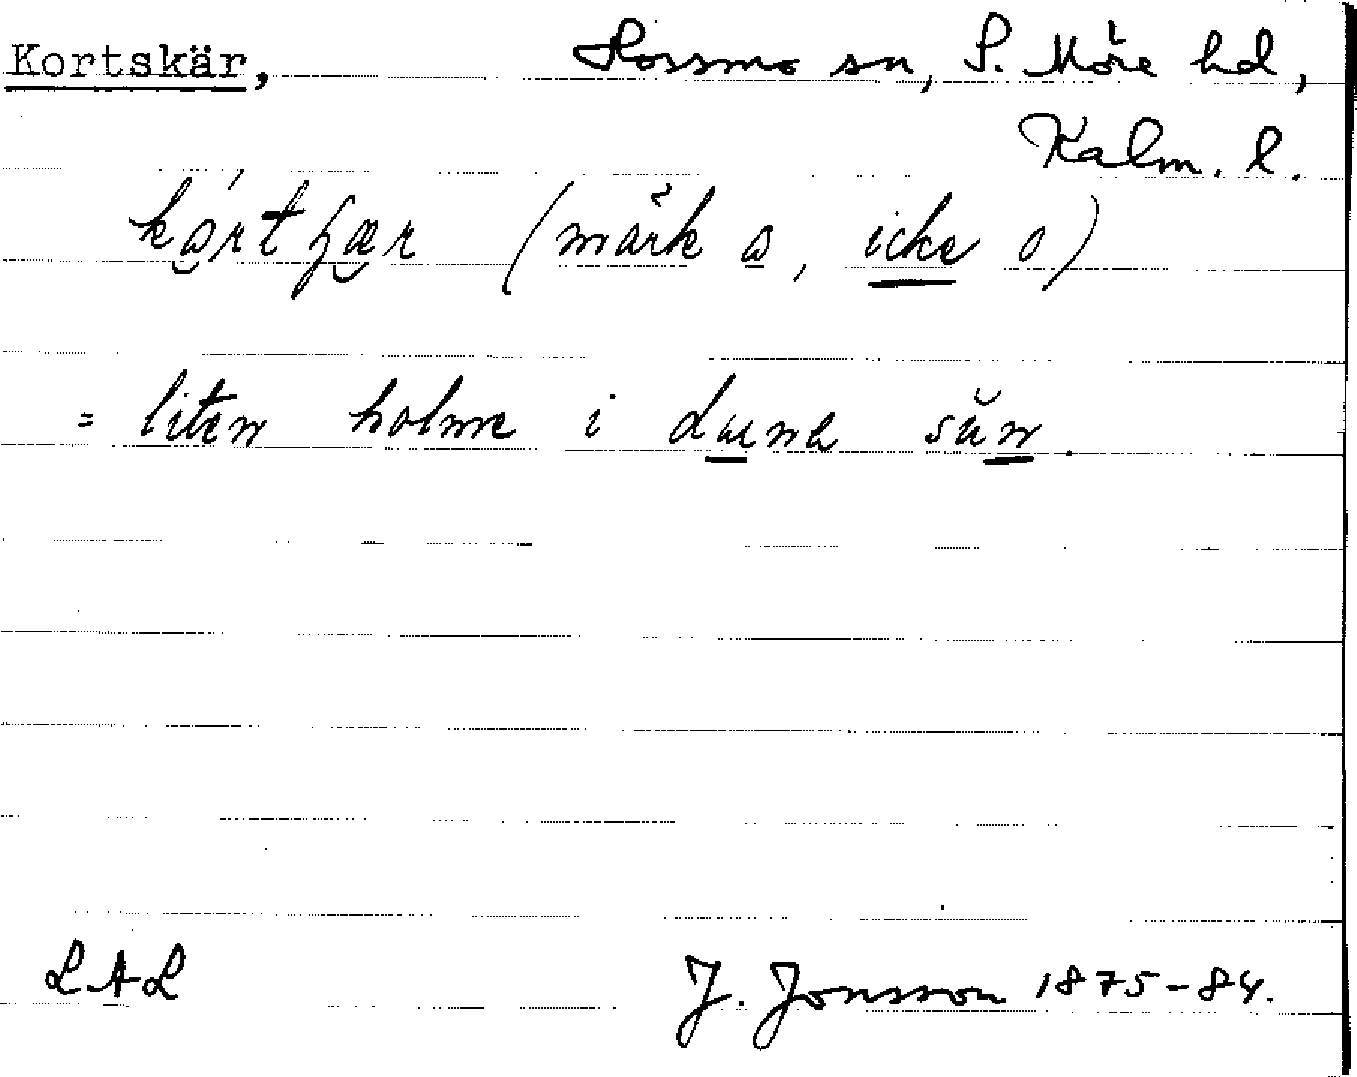 Kortskär, Hossmo sn, S. Möre hd,
Kalm. l.
(märk a, icke o)
= liten holme i
LAL J. Jonsson 1875-84.